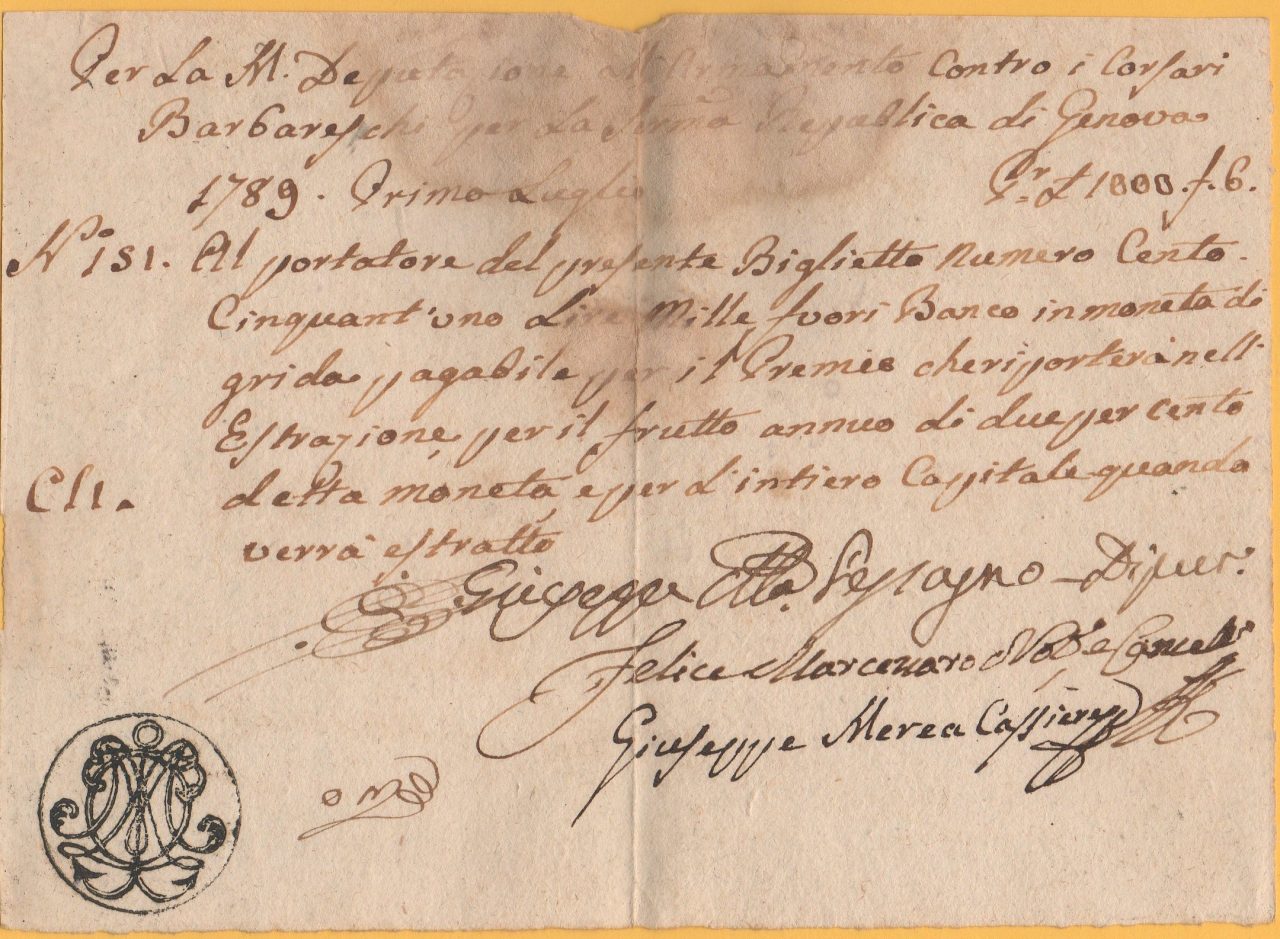 Per La M. Deputazione all'Armamento Contro i Corsari
Barbareschi per La Ser.ma Republica di Genova
1789. Primo Luglio P.r £ 1000. f. 6.
N.o 151. Al portatore del presente Biglietto Numero Cento
Cinquant'uno Lire Mille fuori Banco in moneta di
grida pagabile per il Premio che riporterà nell
Estrazione, per il frutto annuo di due per cento
CLI. detta moneta, e per l'intiero Capitale quando
verrà estratto
Giuseppe Pessagno Diput.
Felice Marcenaro e Cancell.
Giuseppe Merea Cassiere